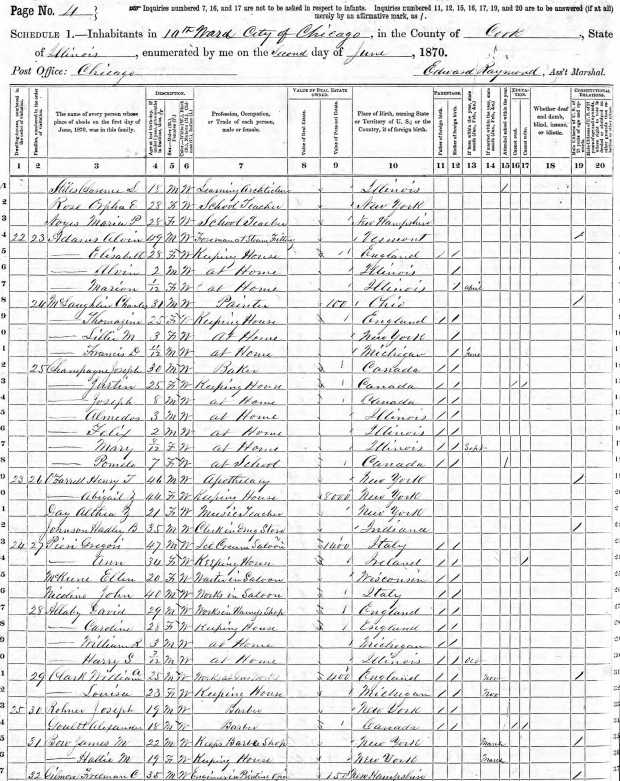 Page No. 4
Inquiries numbered 7, 16, and 17 are not to be asked in respect to infants. Inquiries numbered 11, 12, 15, 16, 17, 19, and 20 are to be answered (if at all) merely by an affirmative mark, as /.
SCHEDULE 1.—Inhabitants in 10th Ward City of Chicago, in the County of Cook, State
of Illinois, enumerated by me on the second day of June, 1870.
Post Office: Chicago
Edward Raymond, Ass't Marshal.
DESCRIPTION. VALUE OF REAL ESTATE OWNED. PARENTAGE. EDUCATION. CONSTITUTIONAL RELATIONS.
The name of every person whose place of abode on the first day of June, 1870, was in this family.
Profession, Occupation, or Trade of each person, male or female.
Place of Birth, naming State or Territory of U. S.; or the Country, if of foreign birth.
Whether deaf and dumb, blind, insane, or idiotic.
1 2 3 4 5 6 7 8 9 10 11 12 13 14 15 16 17 18 19 20
18 M W Learning Architecture Illinois
Rose Orpha E 28 F W School Teacher New York
Noyes Maria P 28 F W School Teacher New Hampshire
22 23 Adams Alvin 49 M W Foreman at Steam Fitting Vermont
— Elisabeth 28 F W Keeping House England
— Alvin 2 M W at Home Illinois
— Marion /12 F W at Home Illinois April
24 McLaughlin Charles 31 M W Painter 100 Ohio
— Thomazine 25 F W Keeping House England
— Lillie M 3 F W At Home New York
— Francis D 11/12 M W at Home Michigan June
25 Champagne Joseph 30 M W Baker Canada
— 25 F W Keeping House Canada
— Joseph 8 M W at Home Canada
— Almedos 3 M W at Home Illinois
— Felix 2 M W at Home Illinois
— Mary /12 F W at Home Illinois Sept
— Pomela 7 F W at School Canada
23 26 O'Farrell Henry T 46 M W Apothecary New York
— Abigail Z 44 F W Keeping House 8000 New York
Day Althea Z 21 F W Music Teacher New York
Johnson Hadley B 35 M W Clerk in Drug Store Indiana
24 27 Gregori 47 M W Ice Cream Saloon 1400 Italy
— Ann 34 F W Keeping House Ireland
Ellen 20 F W Waiter in Saloon Wisconsin
Nicoline John 40 M W Works in Saloon Italy
28 Allaby David 29 M W Works in Shop England
— Caroline 28 F W Keeping House England
— William R 3 M W at Home Michigan
— Harry S /12 M W at Home Illinois
29 Clark William A 25 M W 400 England Nov
— Louisa 23 F W Keeping House Michigan Nov
25 30 Rohner Joseph 19 M W Barber New York
Alexander 18 M W Barber Canada
31 James M 22 M W Keeps Barber Shop New York March
— Hattie M 19 F W Keeping House New York March
32 Freeman C 35 M W 150 New Hampshire